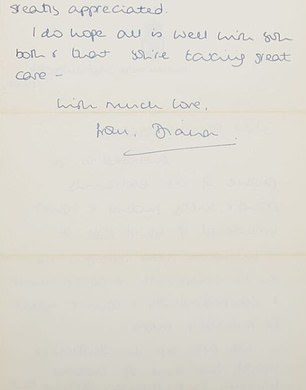 greatly appreciated.
I do hope all is well with you
both & that you're taking great
care –
With much love,
from, Diana.